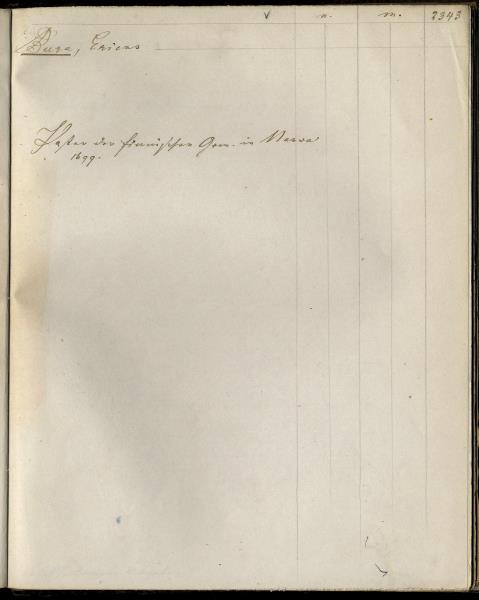 v n. m. 2343
Bure, Ericus
Pastor der finnischen Gem. in Narva
1699.